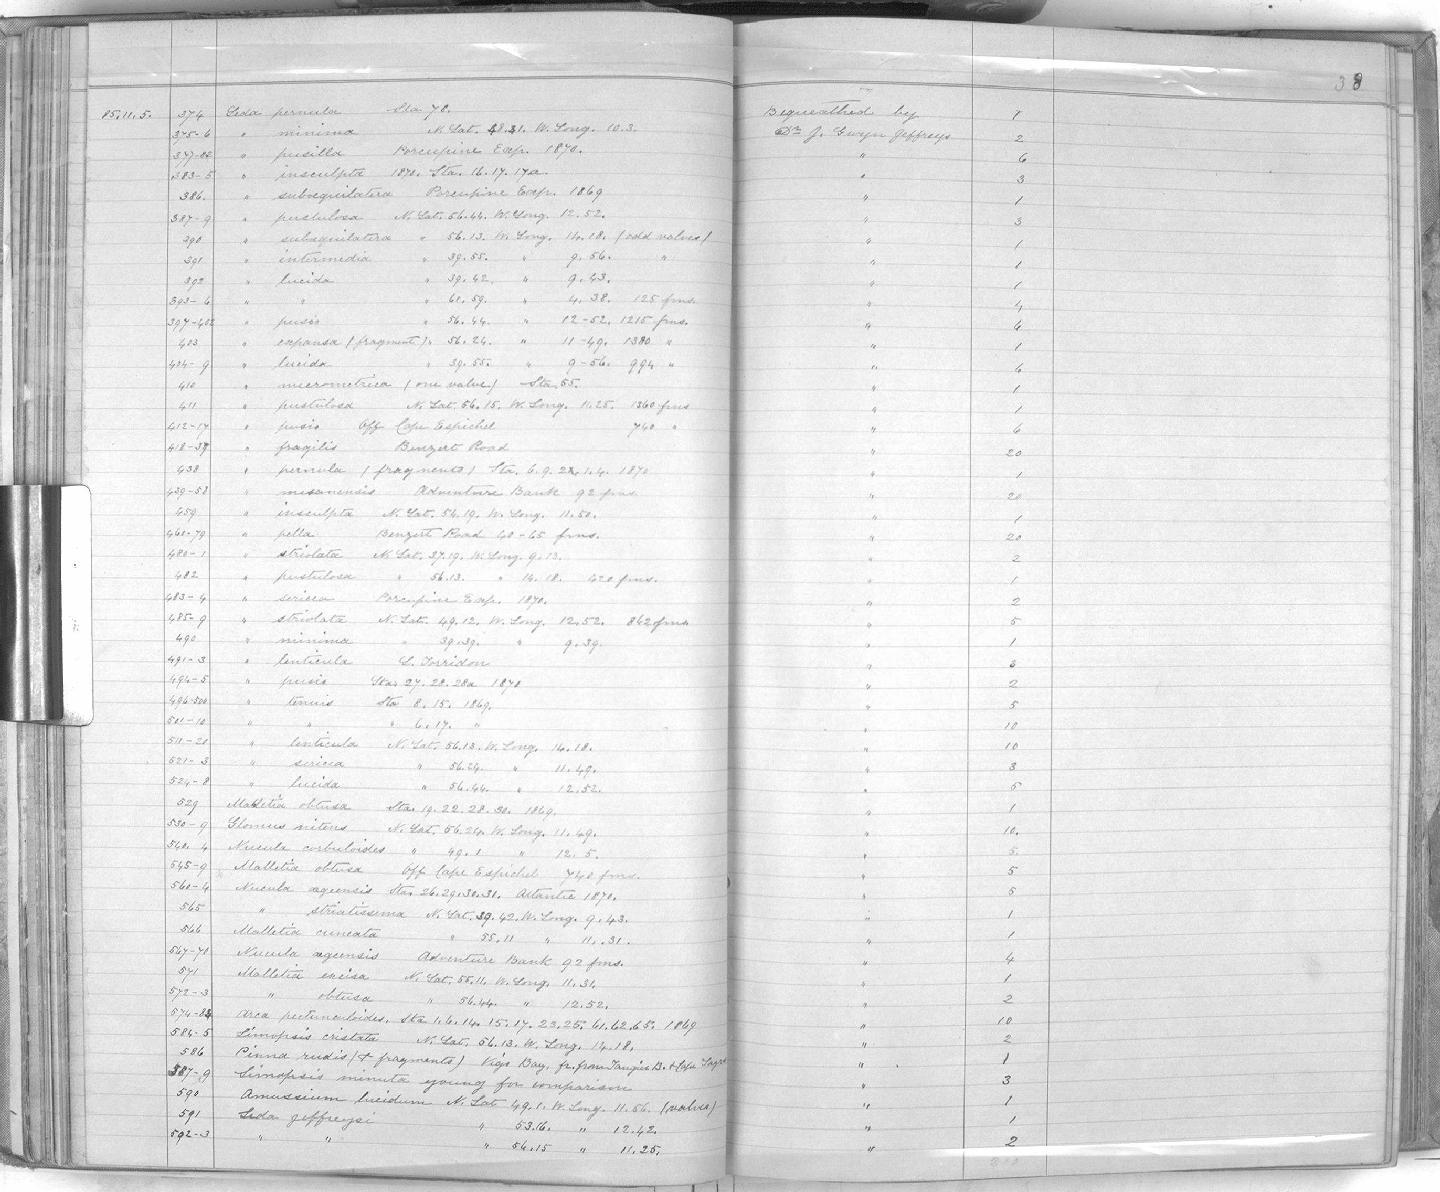 38
85.11.5. 374 Leda pernula Sta 78. Bequeathed by 1
375-6 " minima N. Lat. 48.31. W. Long. 10.3. Dr J. Gwyn Jeffreys 2
377-82 " pusilla Porcupine Exp. 1870. " 6
383-5 " insculpta 1870. Sta. 16. 17. 17a. " 3
386. " subaequilatera Porcupine Exp. 1869 " 1
387-9 " pustulosa N. Lat. 56.44. W. Long. 12.52. " 3
390 " subaequilatera " 56.13. W. Long. 14.18. (odd valves) " 1
391 " intermedia " 39.55. " 9.56. " " 1
392 " lucida " 39.42. " 9.43. " 1
393-6 " " " 61.59. " 4.38. 125 fms. " 4
397-402 " pusio " 56.44. " 12-52. 1215 fms. " 6
403 " expansa (fragment) " 56.24. " 11-49. 1380 " " 1
404-9 " lucida " 39.55. " 9-56. 994 " " 6
410 " micrometrica (one valve) Sta. 55. " 1
411 " pustulosa N. Lat. 56.15. W. Long. 11.25. 1360 fms " 1
412-17 " pusio Off Cape Espichel 740 " " 6
418-37 " fragilis Benzert Road " 20
438 " pernula (fragments) Sta. 6.9. 1.4. 1870 " 1
439-58 " messanensis Adventure Bank 92 fms. " 20
459 " insculpta N. Lat. 54.19. W. Long. 11.50. " 1
460-79 " pella Benzert Road 40-65 fms. " 20
480-1 " striolata N. Lat. 37.19. W. Long. 9.13. " 2
482 " pustulosa " 56.13. " 14.18. 420 fms. " 1
483-4 " sericea Porcupine Exp. 1870. " 2
485-9 " striolata N. Lat. 49.12. W. Long. 12.52. 862 fms. " 5
490 " minima " 39.39. " 9.39. " 1
491-3 " lenticula L. Torridon " 3
494-5 " pusio Sta. 27. 28. 28a 1870 " 2
496-500 " tenuis Sta 8. 15. 1869. " 5
501-10 " " " 6.17. " " 10
511-20 " lenticula N. Lat. 56.13. W. Long. 14.18. " 10
521-3 " sericea " 56.24. " 11.49. " 3
524-8 " lucida " 56.44. " 12.52. " 5
529 Malletia obtusa Sta. 19. 22. 28. 30. 1869. " 1
530-9 Glomus nitens N. Lat. 56.24. W. Long. 11.49. " 10.
540.4 Nucula corbuloides " 49.1 " 12.5. " 5.
545-9 Malletia obtusa Off Cape Espichel 740 fms. " 5
560-4 Nucula aegeensis Sta. 26. 29. 30. 31. Atlantic 1870. " 5
565 " striatissima N. Lat. 39.42. W. Long. 9.43. " 1
566 Malletia cuneata " 55.11 " 11.31. " 1
567-70 Nucula aegeensis Adventure Bank 92 fms. " 4
571 Malletia excisa N. Lat. 55.11. W. Long. 11.31. " 1
572-3 " obtusa " 56.44. " 12.52. " 2
574-83 Arca pectunculoides. Sta 1. 6. 14. 15. 17. 23. 25. 61. 62. 65. 1869 " 10
584-5 Limopsis cristata N. Lat. 56.13. W. Long. 14.18. " 2
586 Pinna rudis (+ fragments) Vigo Bay, fr. from Tangier B. & Cape Sagres " 1
587-9 Limopsis minuta young for comparison " 3
590 Amussium lucidum N. Lat 49.1. W. Long. 11.56. (valve) " 1
591 Leda jeffreysi " 53.16. " 12.42. " 1
592-3 " " " 56.15 " 11.25. " 2